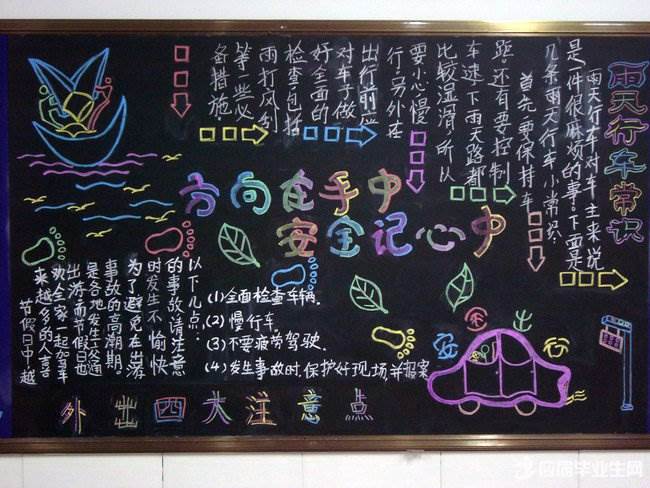 雨天行车常识
雨天行车对车主来说
是一件很麻烦的事,下面是
几条雨天行车小常识。
首先,要保持车
距,还有要控制
车速,下雨天路都
比较湿滑,所以
要小心慢
行,另外在
出行前应
对车子做
好全面的
检查,包括
雨打风刮
等一些必
备措施
方向在手中
安全记心中
节假日中越
来越多的人喜
欢全家一起驾车
出游,而节假日也
是各地发生交通
事故的高潮期。
为了避免在出游
时发生不愉快
的事故请注意
以下几点:
(1)全面检查车辆.
(2)慢行车.
(3)不要疲劳驾驶.
(4)发生事故时,保护好现场,并报案
安全出行
外出四大注意点
应届毕业生网